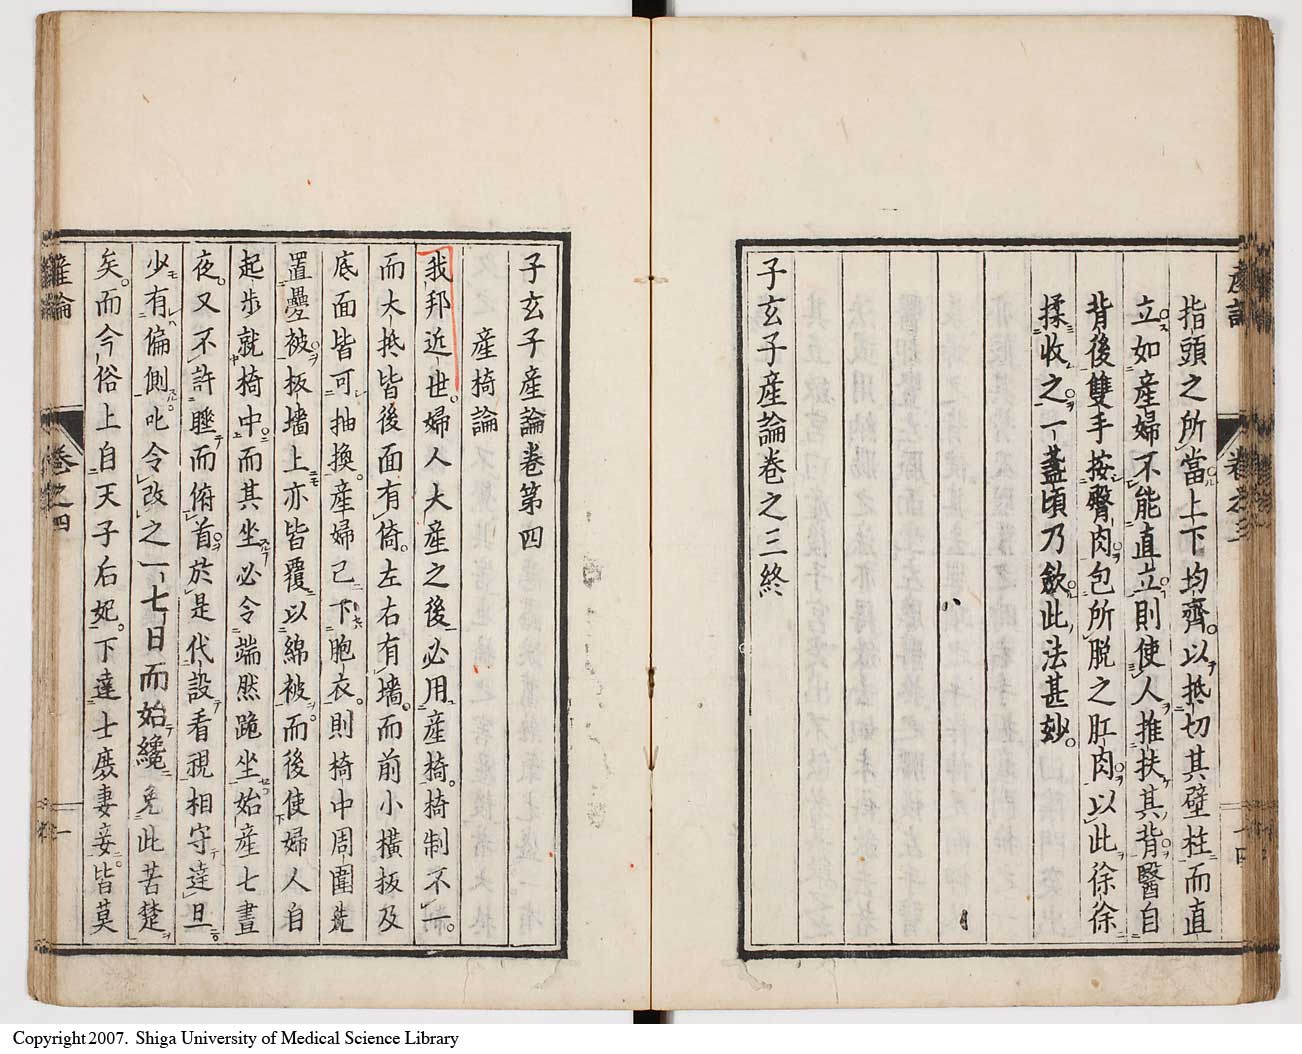 指頭之所當上下均齊。以抵切其壁柱而直
立如産婦不能直立則使人推扶其背醫自
背後雙手按臀肉包所脱之肛肉以此徐徐
揉收之一盞頃乃斂此法甚妙。
子玄子産論卷之三終
子玄子産論卷第四
産椅論
我邦近世。婦人大産之後必用産椅。椅制不一。
而大抵皆後面有倚。左右有墻。而前小横板及
底面皆可抽換。産婦已下胞衣。則椅中周圍先
置疊被板墻上亦皆覆以綿被。而後使婦人自
起歩就椅中而其坐必令端然跪坐始産七晝
夜。又不許睡而俯首於是代設看視相守達旦
少有偏側叱令改之一七日而始纔免此苦楚
矣。而今俗上自天子后妃。下達士庶妻妾。皆莫
産論
卷之四
一
Copyright 2007. Shiga University of Medical Science Library